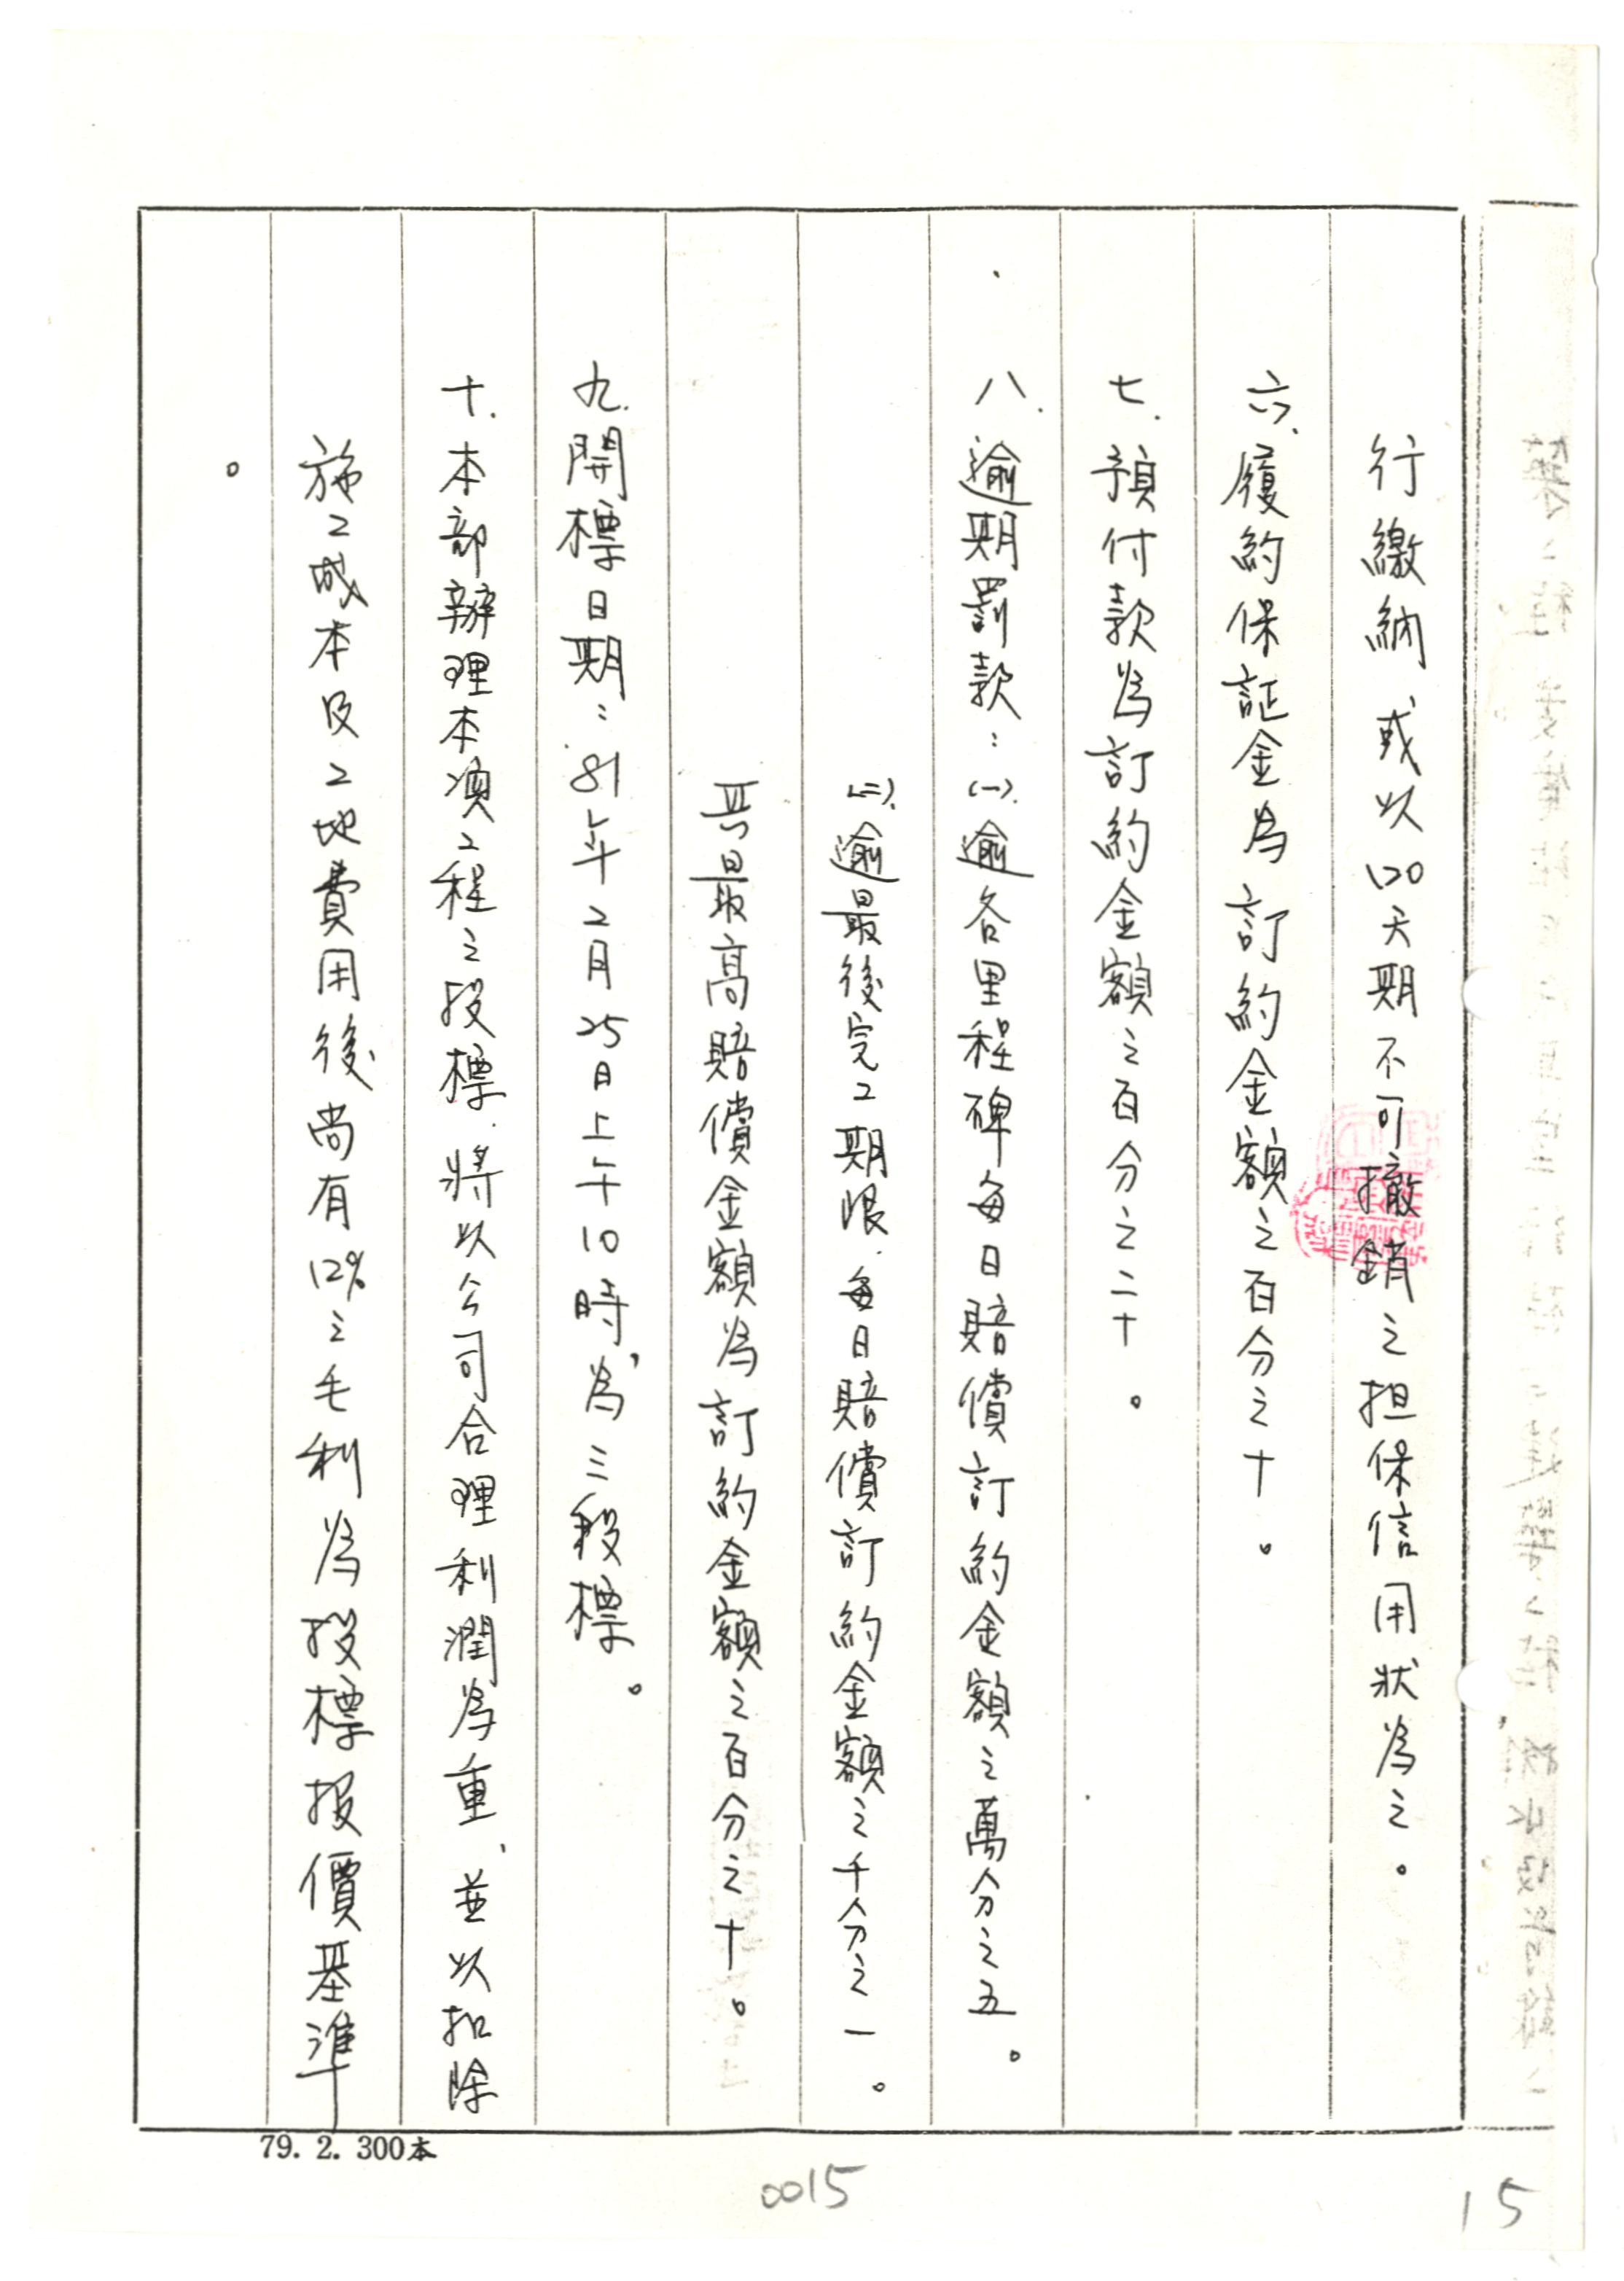 行繳納或以120天期不可撤銷之担保信用狀為之。
六.履約保証金為訂約金額之百分之十。
七.預付款為訂約金額之百分之二十。
八.逾期罰款：(一).逾各里程碑每日賠償訂約金額之萬分之五。
(二).逾最後完工期限.每日賠償訂約金額之千分之一。
其最高賠償金額為訂約金額之百分之十。
九.開標日期：81年2月25日上午10時，為三段標。
十.本部辦理本項工程之投標.將以公司合理利潤為重，並以扣除
施工成本及工地費用後尚有12%之毛利為投標報價基準
。
79. 2. 300本
0015
15